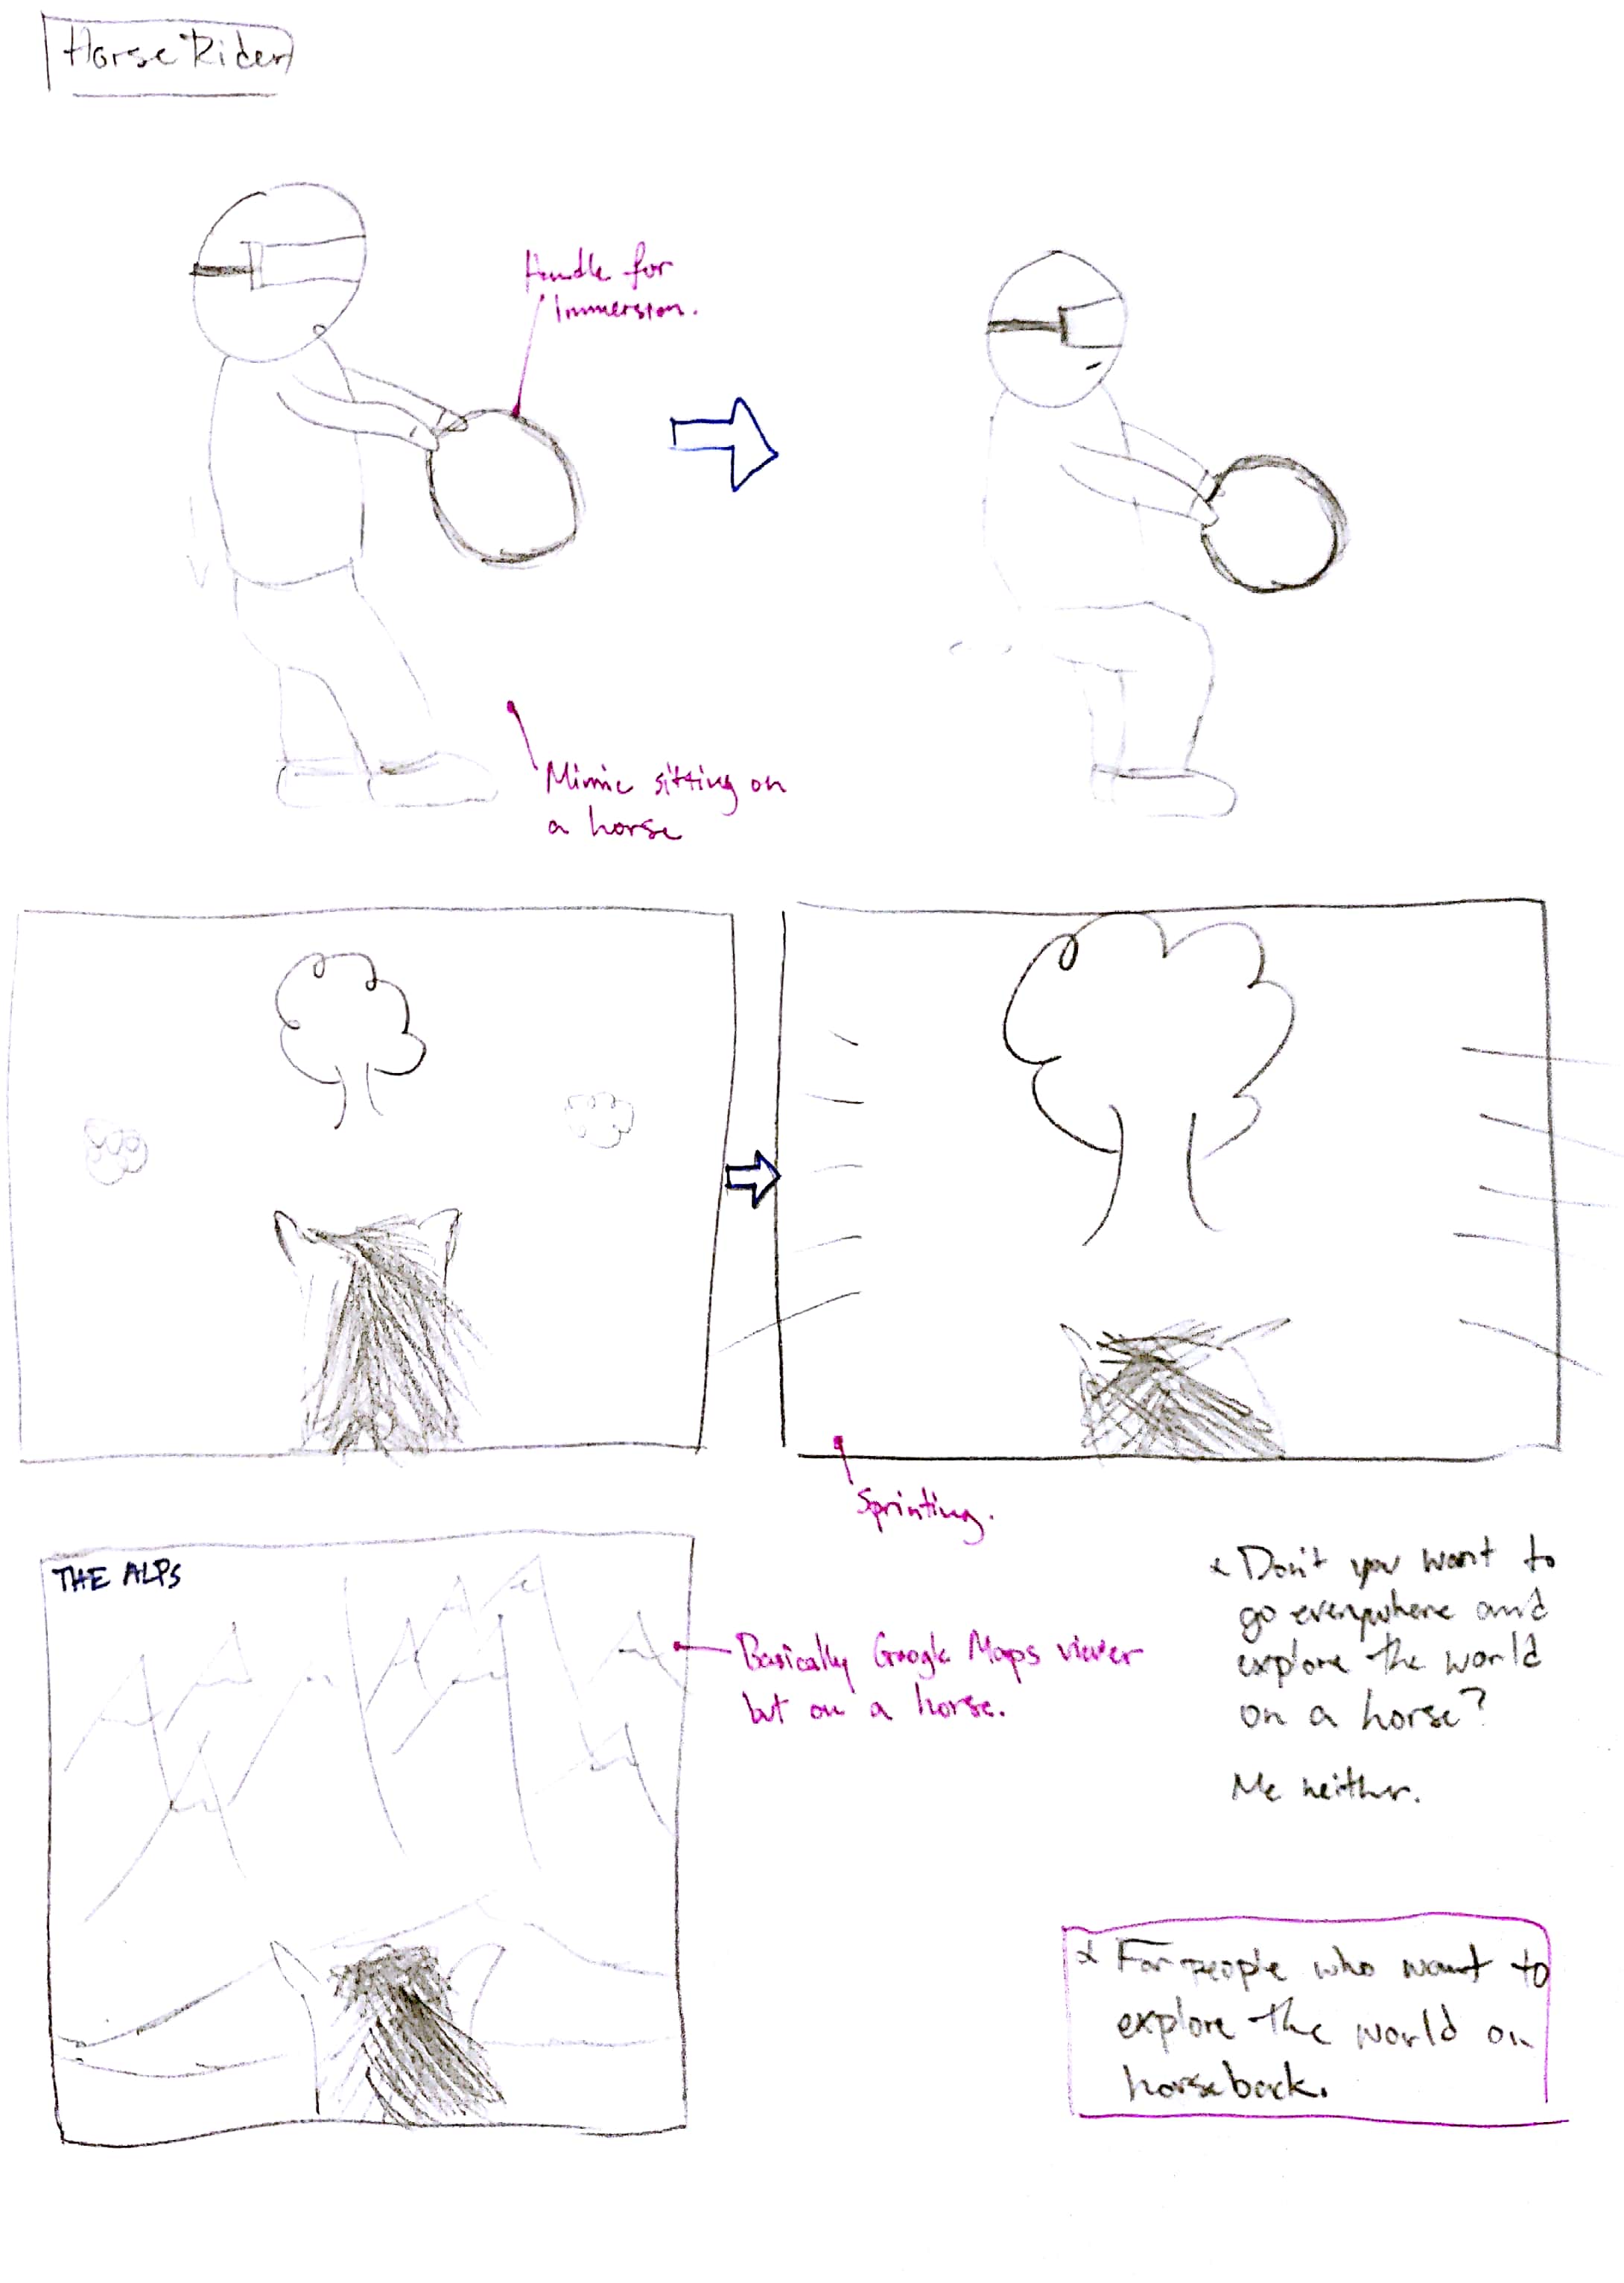 Horse Rider
Handle for
Immersion.
Mimic sitting on
a horse
Sprinting.
THE ALPS
Basically Google Maps viewer
but on a horse.
* Don't you want to
go everywhere and
explore the world
on a horse?
Me neither.
* For people who want to
explore the world on
horseback.